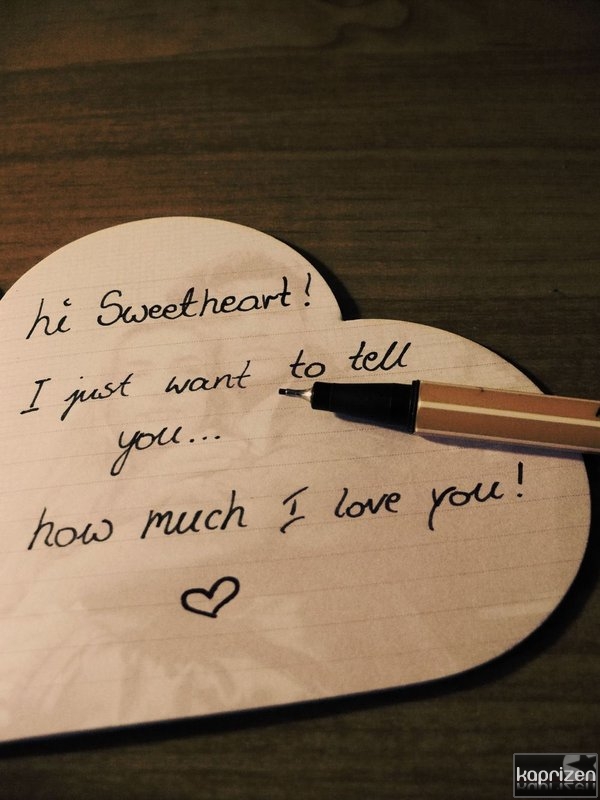 hi Sweetheart!
I just want to tell
you...
how much I love you!
kaprizen